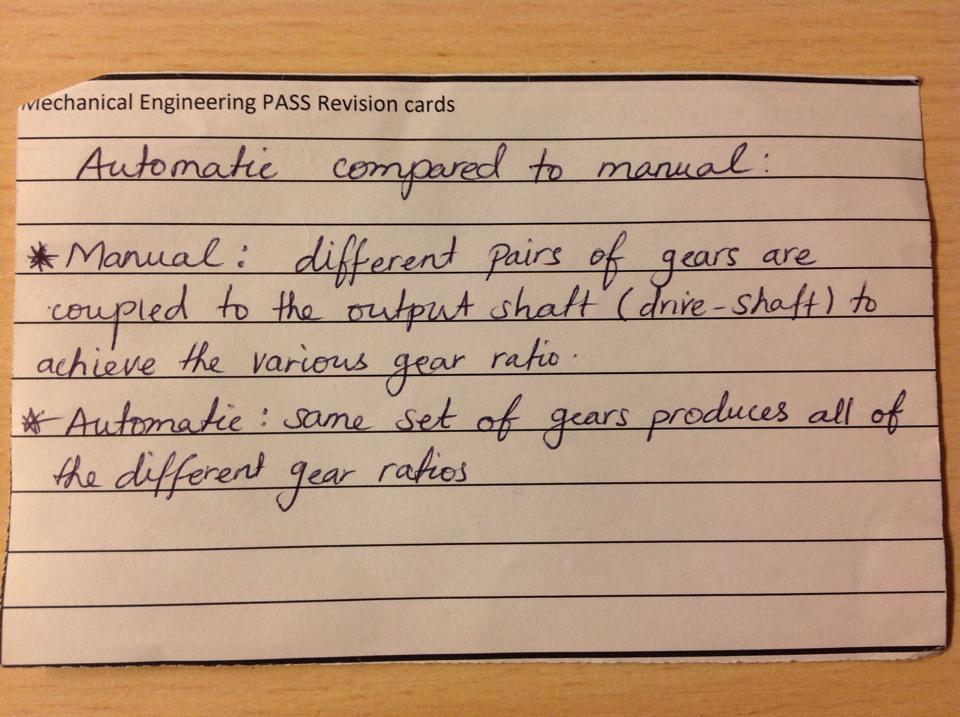 Mechanical Engineering PASS Revision cards
Automatic compared to manual:
* Manual: different pairs of gears are
coupled to the output shaft (drive-shaft) to
achieve the various gear ratio.
* Automatic: same set of gears produces all of
the different gear ratios